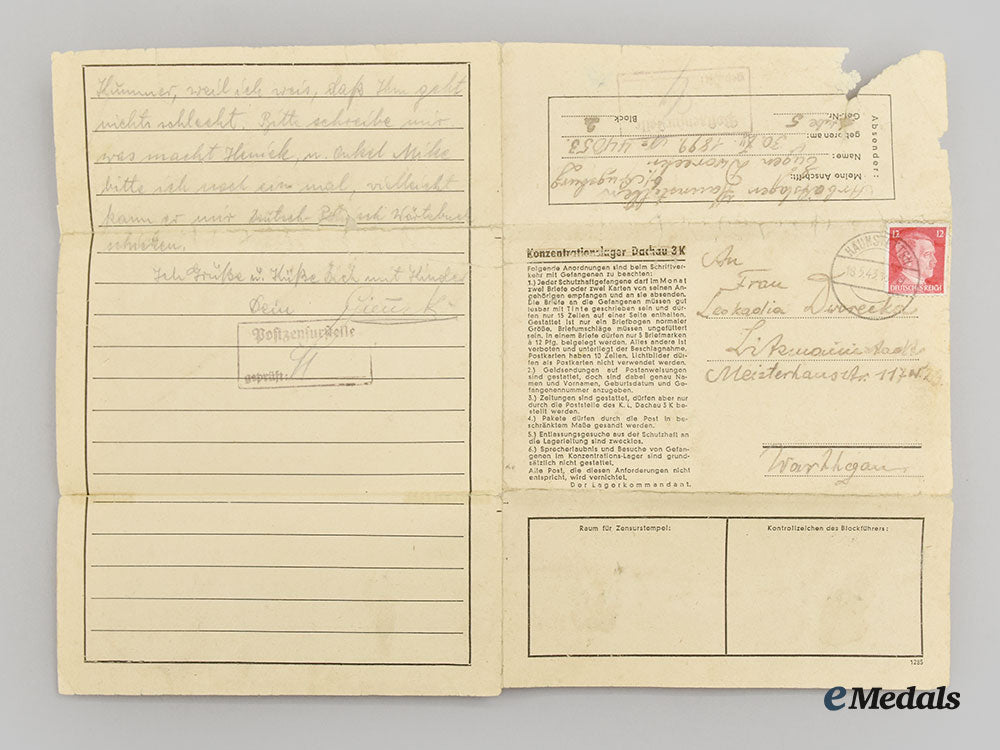 Kummer, weil ich weis, daß Ihm geht
nichts schlecht. Bitte schreibe mir
was macht Heniek, u. onkel Mike
bitte ich noch ein mal, vielleicht
kann er mir Deutsch Wörtebuch
schicken.
Ich Grüße u. Küße Dich Kinder
Dein
Postzensurstelle
geprüft:
Absender:
Meine Anschrift:
Arbeitslager Haunstetten
b/Augsburg
Name: Dworecki
geboren am: 30. 1899 No 44053
Gef.-Nr.
Stube 5 Block 2
Postzensurstelle
geprüft:
Konzentrationslager Dachau 3 K
Folgende Anordnungen sind beim Schriftver-
kehr mit Gefangenen zu beachten:
1.) Jeder Schutzhaftgefangene darf im Monat
zwei Briefe oder zwei Karten von seinen An-
gehörigen empfangen und an sie absenden.
Die Briefe an die Gefangenen müssen gut
lesbar mit Tinte geschrieben sein und dür-
fen nur 15 Zeilen auf einer Seite enthalten.
Gestattet ist nur ein Briefbogen normaler
Größe. Briefumschläge müssen ungefüttert
sein. In einem Briefe dürfen nur 5 Briefmarken
à 12 Pfg. beigelegt werden. Alles andere ist
verboten und unterliegt der Beschlagnahme.
Postkarten haben 10 Zeilen. Lichtbilder dür-
fen als Postkarten nicht verwendet werden.
2.) Geldsendungen auf Postanweisungen
sind gestattet, doch sind dabei genau Na-
men und Vornamen, Geburtsdatum und Ge-
fangenennummer anzugeben.
3.) Zeitungen sind gestattet, dürfen aber nur
durch die Poststelle des K. L. Dachau 3 K be-
stellt werden.
4.) Pakete dürfen durch die Post in be-
schränktem Maße gesandt werden.
5.) Entlassungsgesuche aus der Schutzhaft an
die Lagerleitung sind zwecklos.
6.) Sprecherlaubnis und Besuche von Gefan-
genen im Konzentrations-Lager sind grund-
sätzlich nicht gestattet.
Alle Post, die diesen Anforderungen nicht
entspricht, wird vernichtet.
Der Lagerkommandant.
12 12
DEUTSCHES REICH
An
Frau
Leokadia Dworecki
Litzmannstadt
Meisterhausstr. 117
Warthgau
Raum für Zensurstempel:
Kontrollzeichen des Blockführers:
1285
eMedals